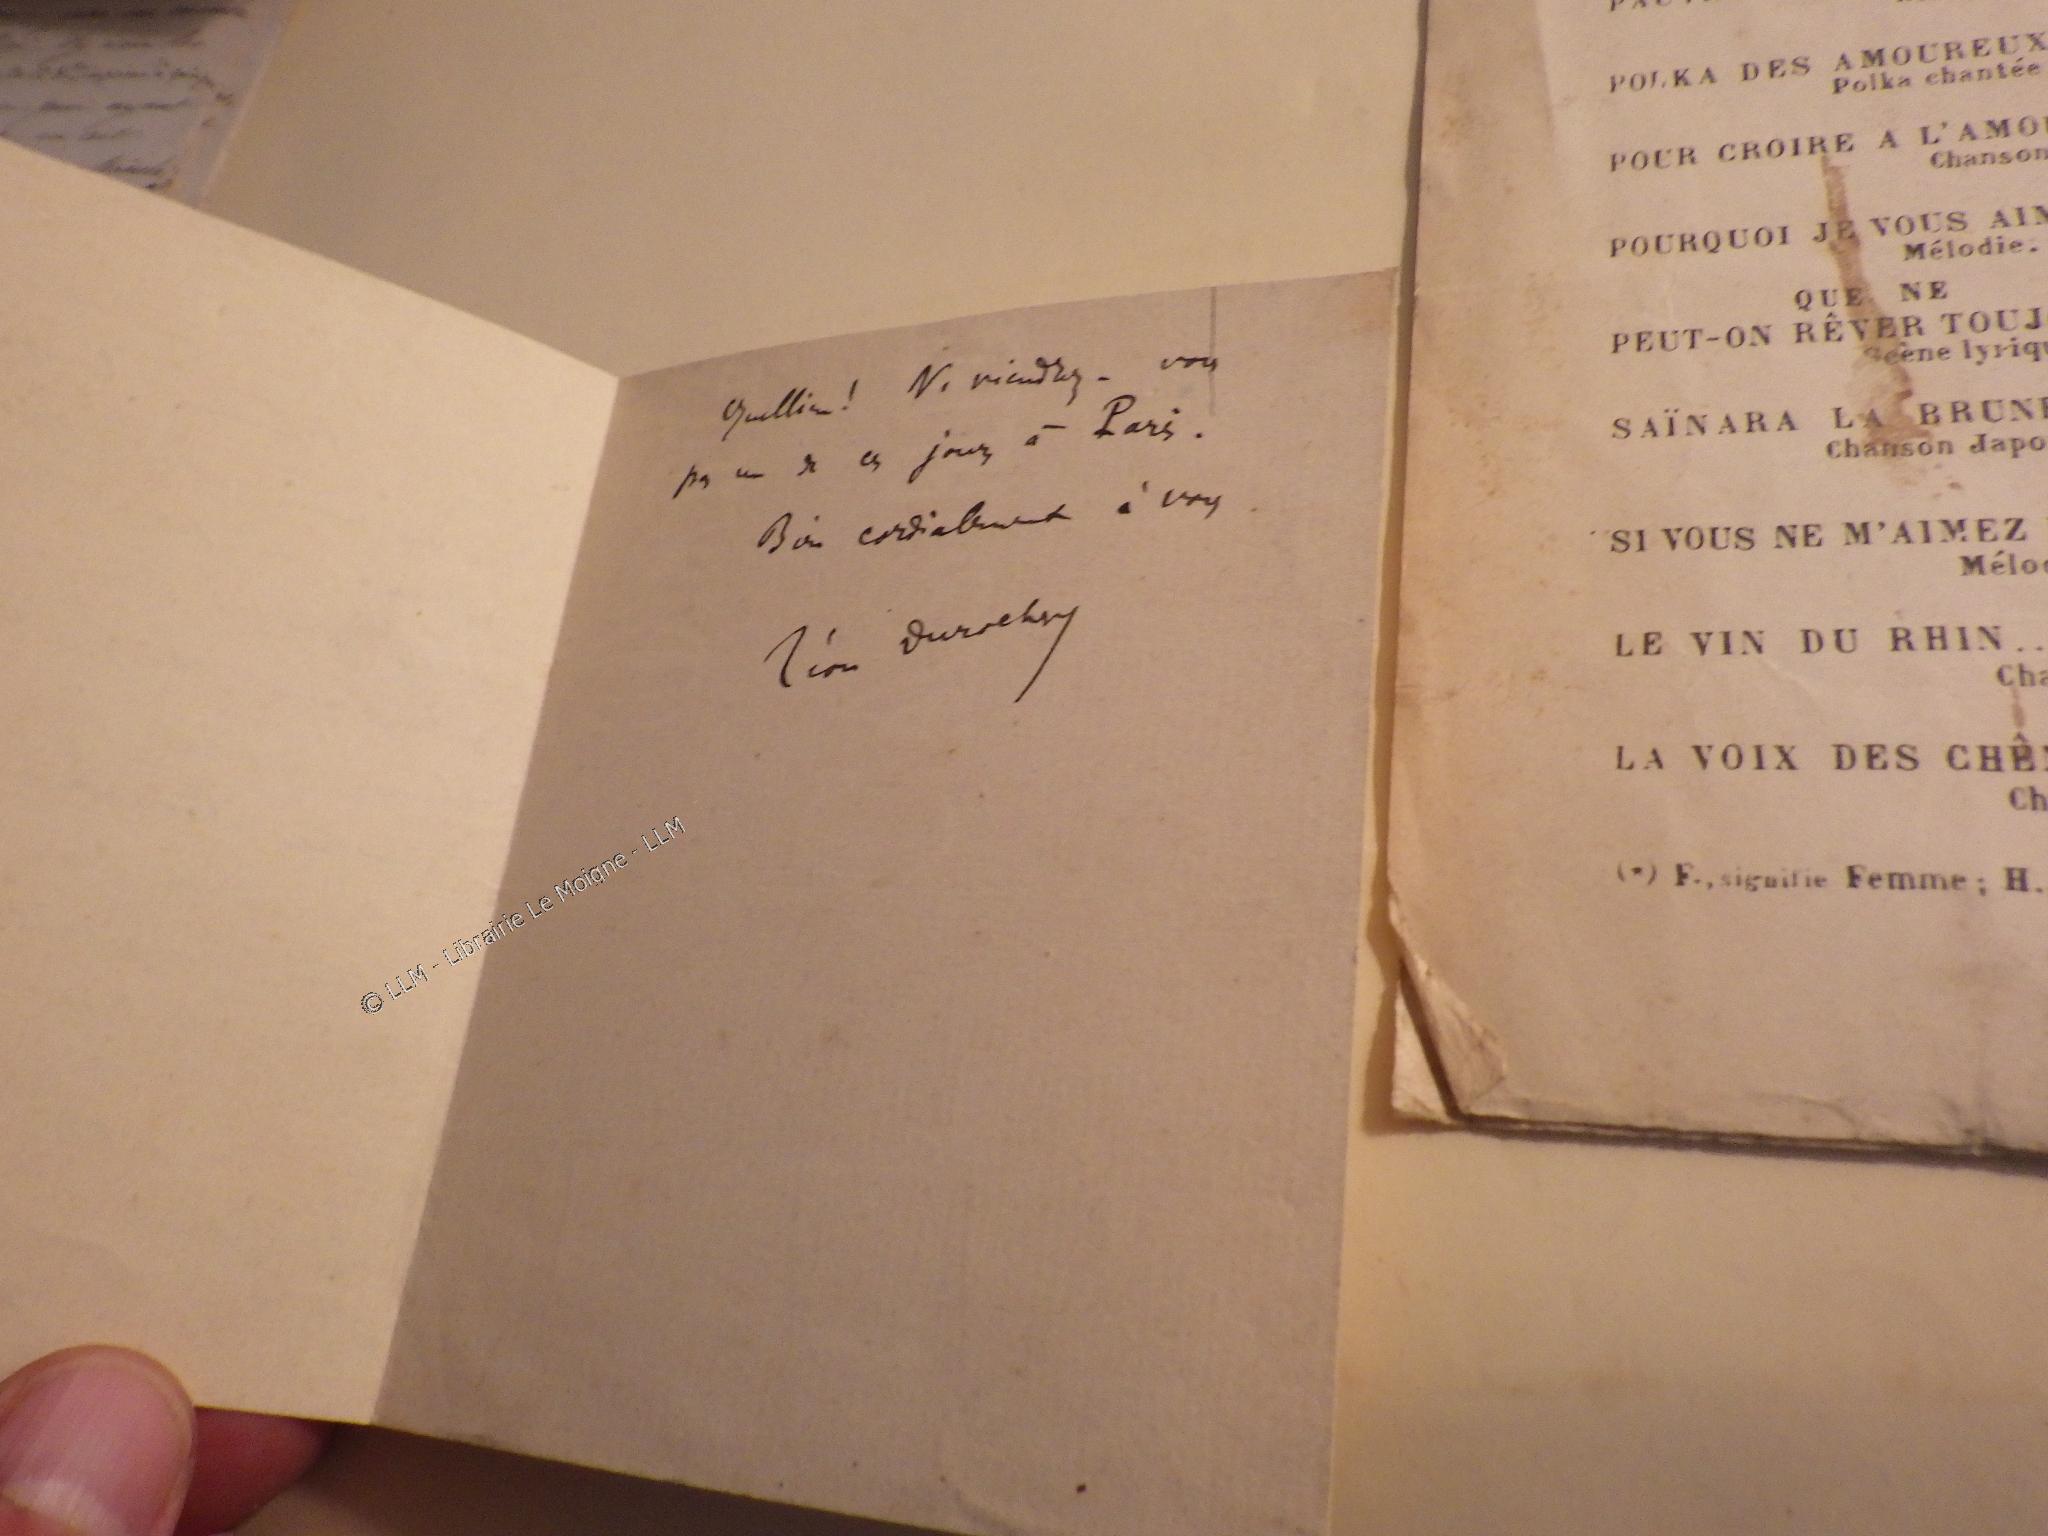 Quellien! Ne viendrez-vous
pas un de ces jours à Paris.
Bien cordialement à vous.
Léon Durocher
© LLM - Librairie Le Moigne - LLM
POLKA DES AMOUREUX
Polka chantée
POUR CROIRE A L'AMOU
Chanson
POURQUOI JE VOUS AIM
Mélodie.
QUE NE
PEUT-ON RÊVER TOUJO
Scène lyriqu
SAÏNARA LA BRUNE
Chanson Japo
SI VOUS NE M'AIMEZ
Mélod
LE VIN DU RHIN..
Cha
LA VOIX DES CHÊN
Ch
(*) F., signifie Femme; H.